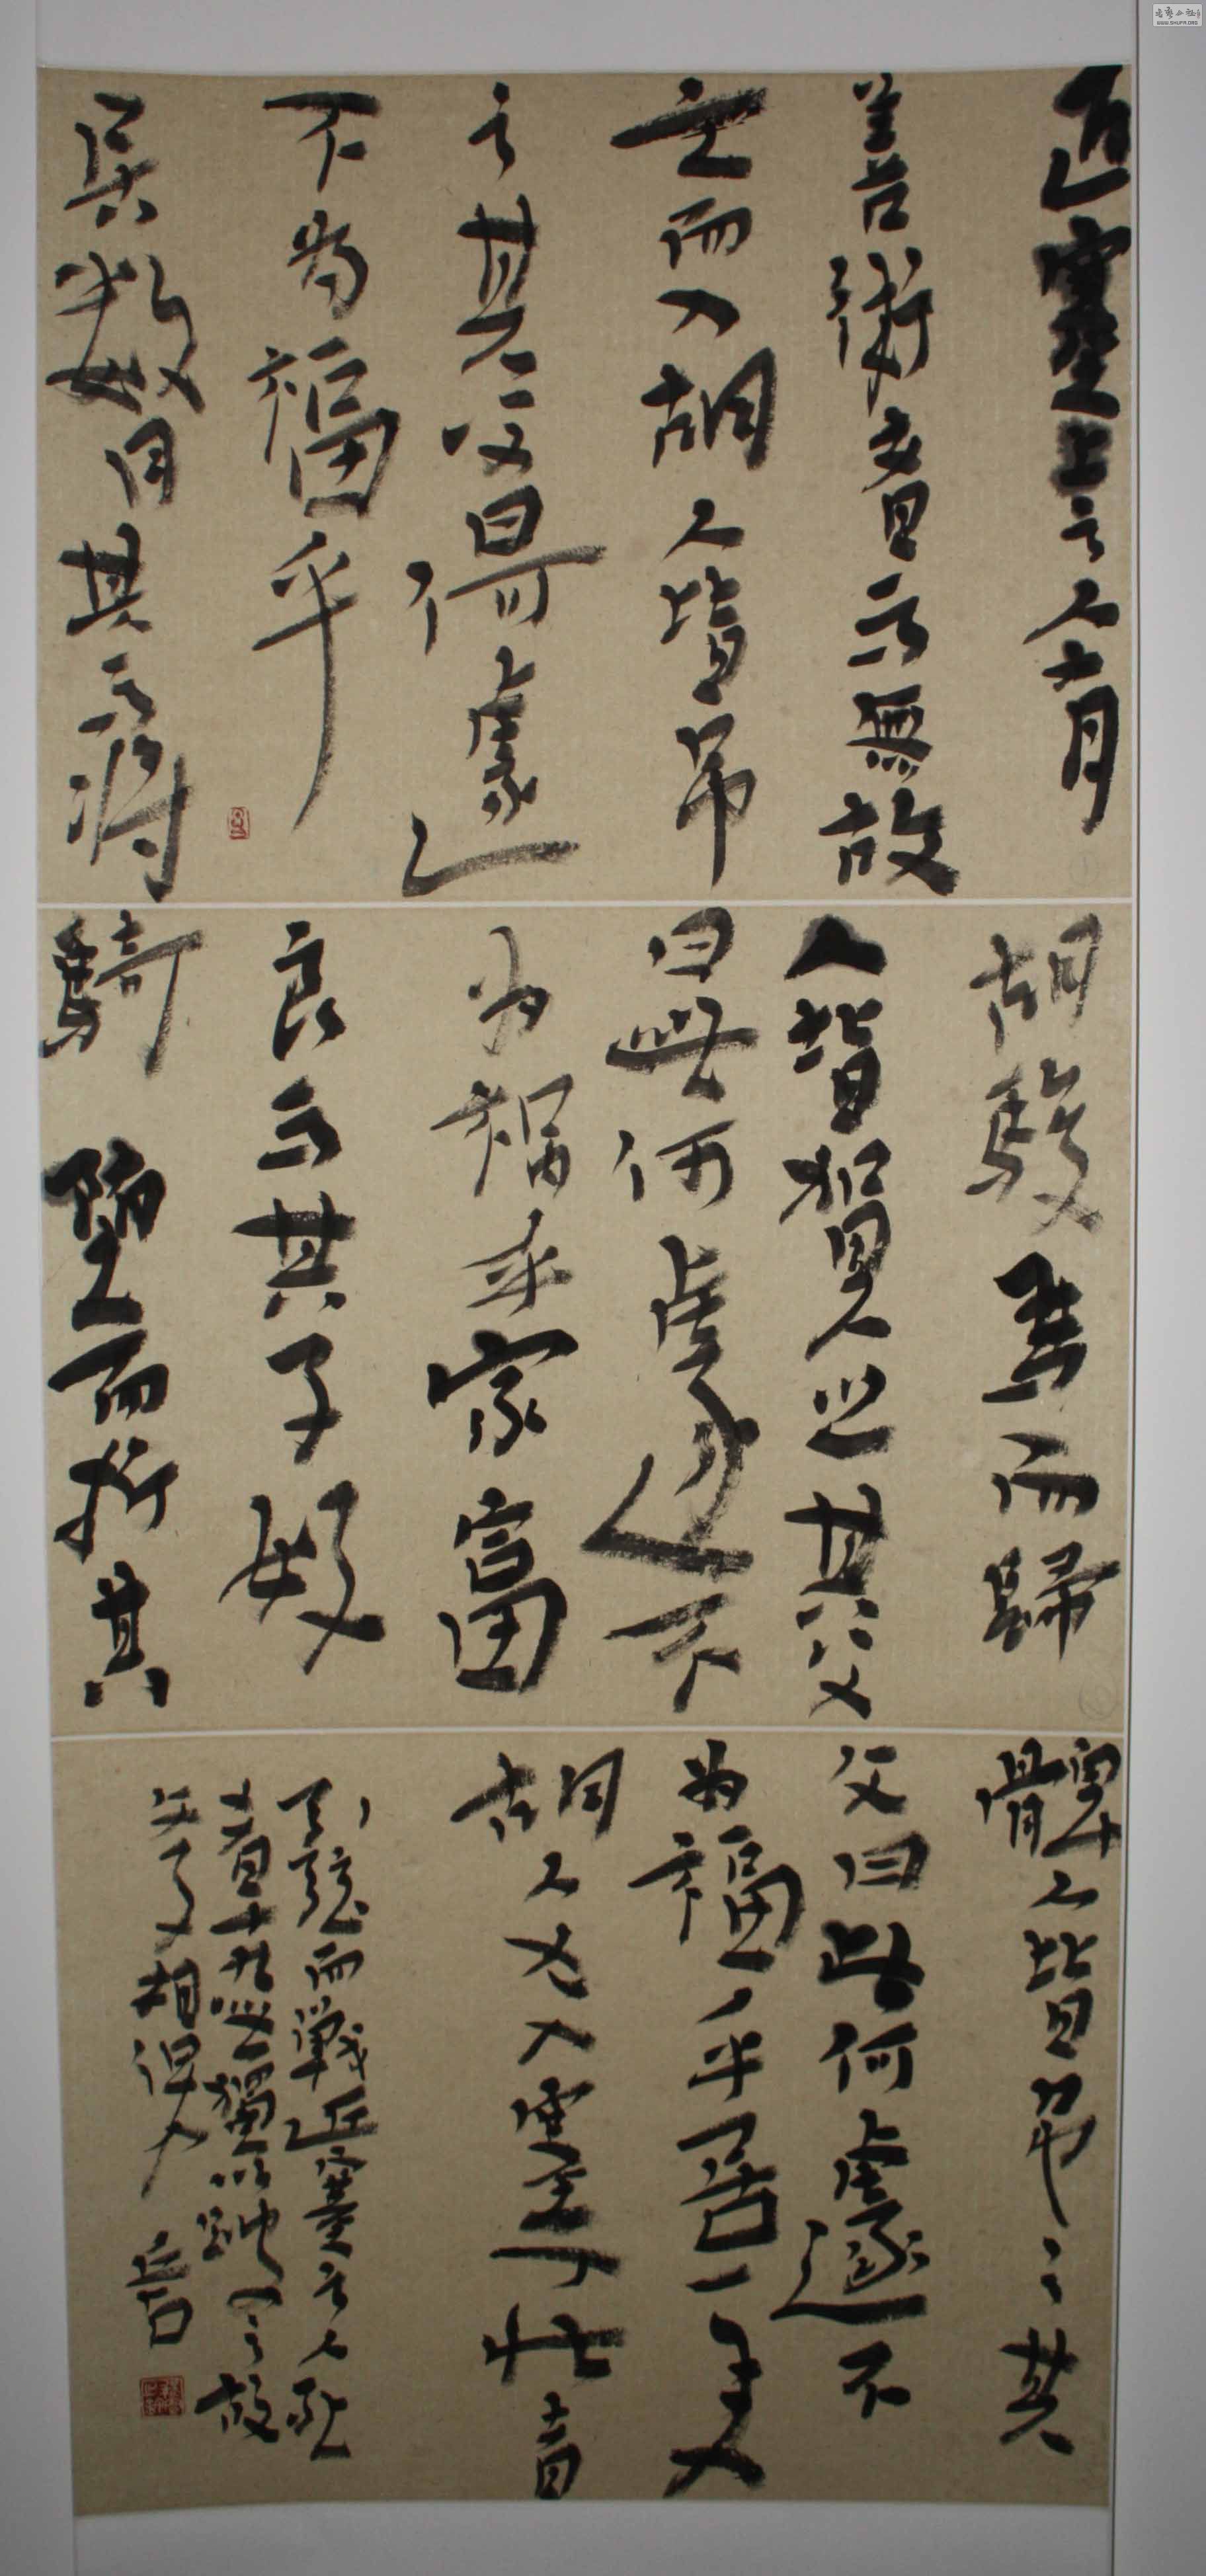 近塞上之人有
善術者馬無故
亡而入胡人皆吊
之其父曰何遽
不為福乎
居數月其馬將
胡駿馬而歸
人皆賀之其父
曰此何遽不
為禍乎家富
良馬其子好
騎墮而折其
髀人皆吊之其
父曰此何遽不
為福乎居一年
胡人大入塞丁壯者
引弦而戰近塞之人死
者十九此獨以跛之故
父子相保
WWW.SHUFA.ORG